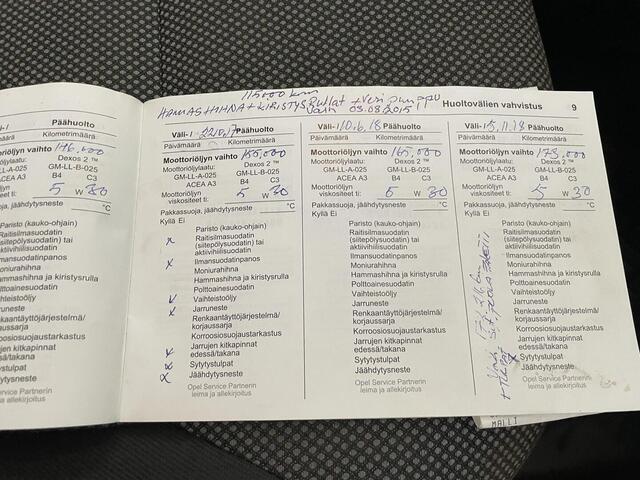 115000 km
HAMASHIHNA + KIRISTYS Rullat + Vesi pumppu
03.08.2015
Huoltovälien vahvistus 9
Päähuolto
Kilometrimäärä
Moottoriöljyn vaihto
Dexos 2 ™
GM-LL-A-025 GM-LL-B-025
ACEA A3 B4 C3
5 W 30
°C
Väli-/ Päähuolto
Päivämäärä Kilometrimäärä
Moottoriöljyn vaihto 155,000
Moottoriöljylaatu: Dexos 2 ™
GM-LL-A-025 GM-LL-B-025
ACEA A3 B4 C3
Moottoriöljyn
viskositeet ti: 5 W 30
Pakkassuoja, jäähdytysneste °C
Kyllä Ei
Paristo (kauko-ohjain)
x Raitisilmasuodatin
(siitepölysuodatin) tai
aktiivihiilisuodatin
x Ilmansuodatinpanos
Moniurahihna
Hammashihna ja kiristysrulla
Polttoainesuodatin
v Vaihteistoöljy
x Jarruneste
Renkaantäyttöjärjestelmä/
korjaussarja
Korroosiosuojaustarkastus
x Jarrujen kitkapinnat
edessä/takana
x Sytytystulpat
x Jäähdytysneste
Opel Service Partnerin
leima ja allekirjoitus
Väli-/ 10.6.18 Päähuolto
Päivämäärä Kilometrimäärä
Moottoriöljyn vaihto 165,000
Moottoriöljylaatu: Dexos 2 ™
GM-LL-A-025 GM-LL-B-025
ACEA A3 B4 C3
Moottoriöljyn
viskositeet ti: 5 W 30
Pakkassuoja, jäähdytysneste °C
Kyllä Ei
Paristo (kauko-ohjain)
Raitisilmasuodatin
(siitepölysuodatin) tai
aktiivihiilisuodatin
Ilmansuodatinpanos
Moniurahihna
Hammashihna ja kiristysrulla
Polttoainesuodatin
Vaihteistoöljy
Jarruneste
Renkaantäyttöjärjestelmä/
korjaussarja
Korroosiosuojaustarkastus
Jarrujen kitkapinnat
edessä/takana
Sytytystulpat
Jäähdytysneste
Opel Service Partnerin
leima ja allekirjoitus
Väli-/ 5.11.18 Päähuolto
Päivämäärä Kilometrimäärä
Moottoriöljyn vaihto 173,000
Moottoriöljylaatu: Dexos 2 ™
GM-LL-A-025 GM-LL-B-025
ACEA A3 B4 C3
Moottoriöljyn
viskositeet ti: 5 W 30
Pakkassuoja, jäähdytysneste °C
Kyllä Ei
Paristo (kauko-ohjain)
Raitisilmasuodatin
(siitepölysuodatin) tai
aktiivihiilisuodatin
Ilmansuodatinpanos
Moniurahihna
Hammashihna ja kiristysrulla
Polttoainesuodatin
Vaihteistoöljy
Jarruneste
Renkaantäyttöjärjestelmä/
korjaussarja
Korroosiosuojaustarkastus
Jarrujen kitkapinnat
edessä/takana
Sytytystulpat
Jäähdytysneste
Opel Service Partnerin
leima ja allekirjoitus
MALLI